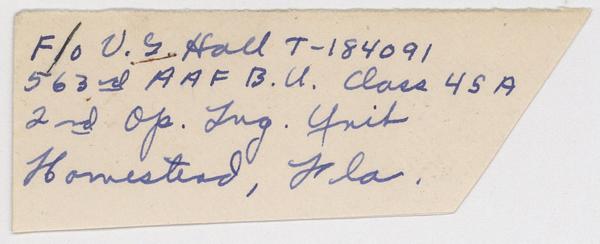 F/o V. G. Hall T-184091
563rd AAF B.U. Class 45A
2nd Op. Tng. Unit
Homestead, Fla.